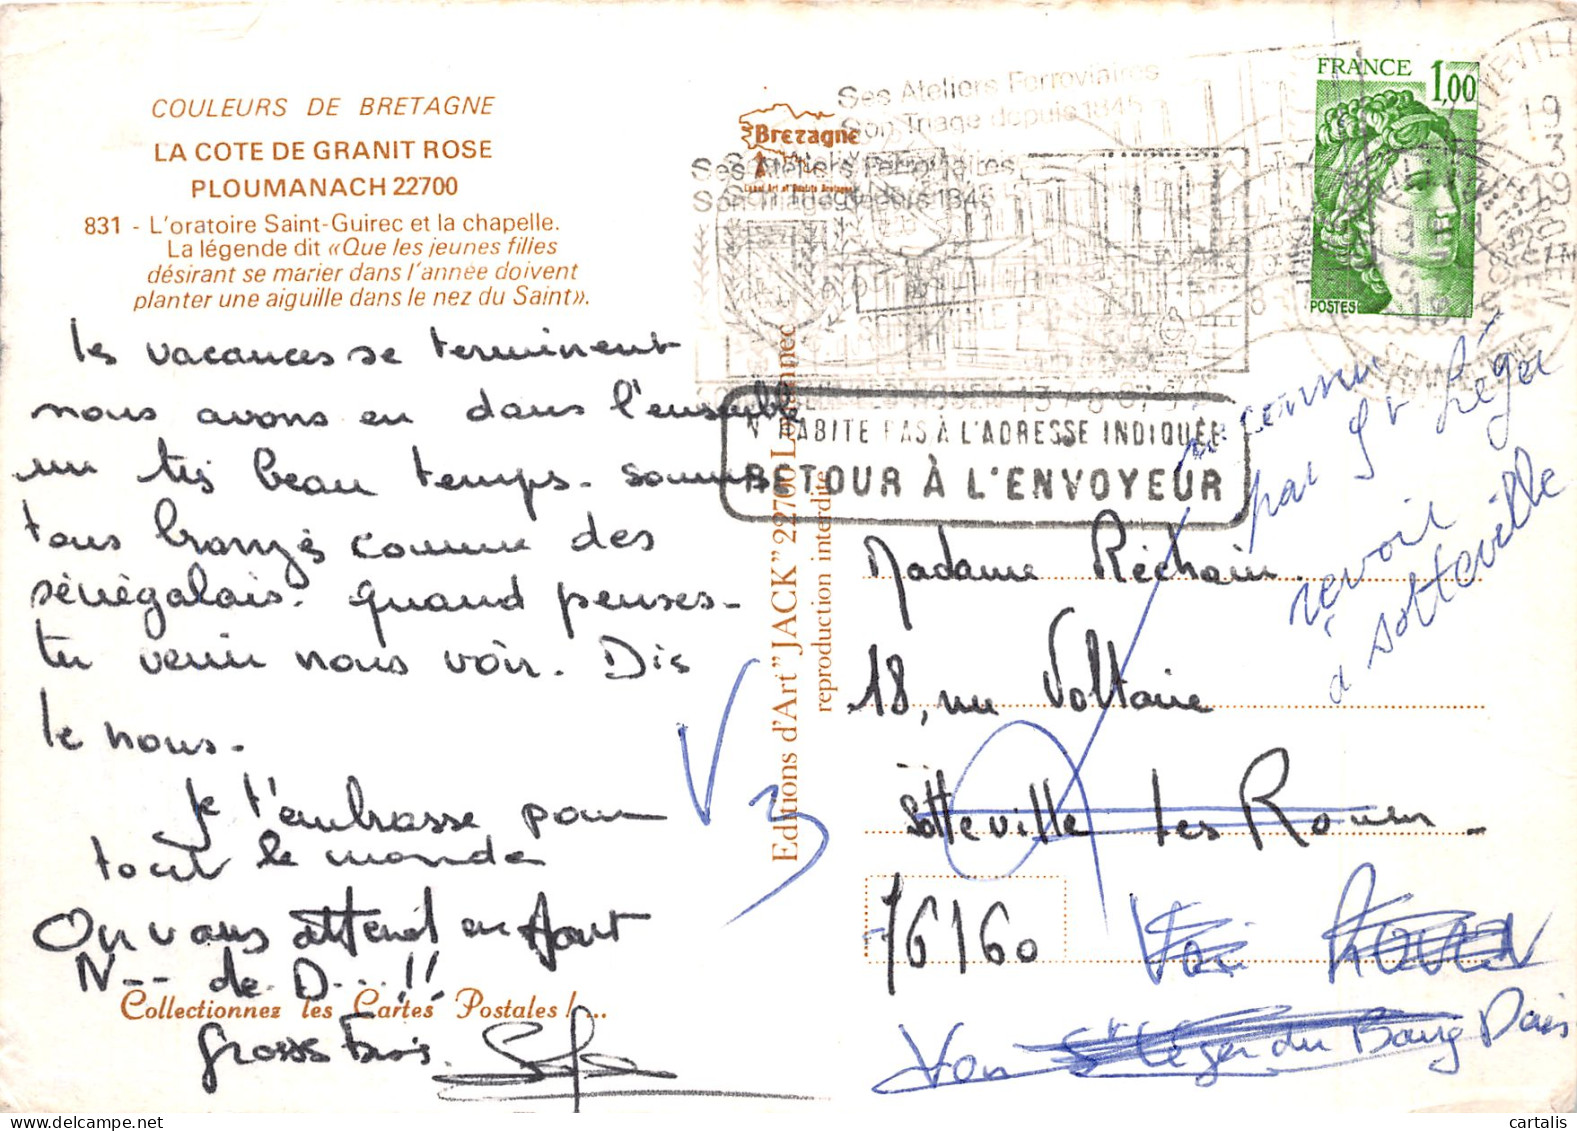 COULEURS DE BRETAGNE
LA COTE DE GRANIT ROSE
PLOUMANACH 22700
831 - L'oratoire Saint-Guirec et la chapelle.
La légende dit «Que les jeunes filles
désirant se marier dans l'année doivent
planter une aiguille dans le nez du Saint».
les vacances se terminent
nous avons eu dans l'ensemble
un très beau temps. sommes
tous bronzés comme des
sénégalais. quand penses-
tu venir nous voir. Dis
le nous.
Je t'embrasse pour
tout le monde
On vous attend en Aout
N-- de D...!!
Collectionnez les Cartes Postales !...
grosses bises
Bretagne
Label Art et Qualité Bretagne
Editions d'Art "JACK" 22700 Louannec
reproduction interdite
Ses Ateliers Ferroviaires
Son Triage depuis 1845
Ses Ateliers Ferroviaires
Son Triage depuis 1845
FRANCE 1,00
POSTES
N'HABITE PAS À L'ADRESSE INDIQUÉE
RETOUR À L'ENVOYEUR
inconnu
par St Léger
revoir
à Sotteville
Madame Réchain
18, rue Voltaire
Sotteville les Rouen
76160
Voir Rouen
Voir St Léger du Bourg Denis
V3